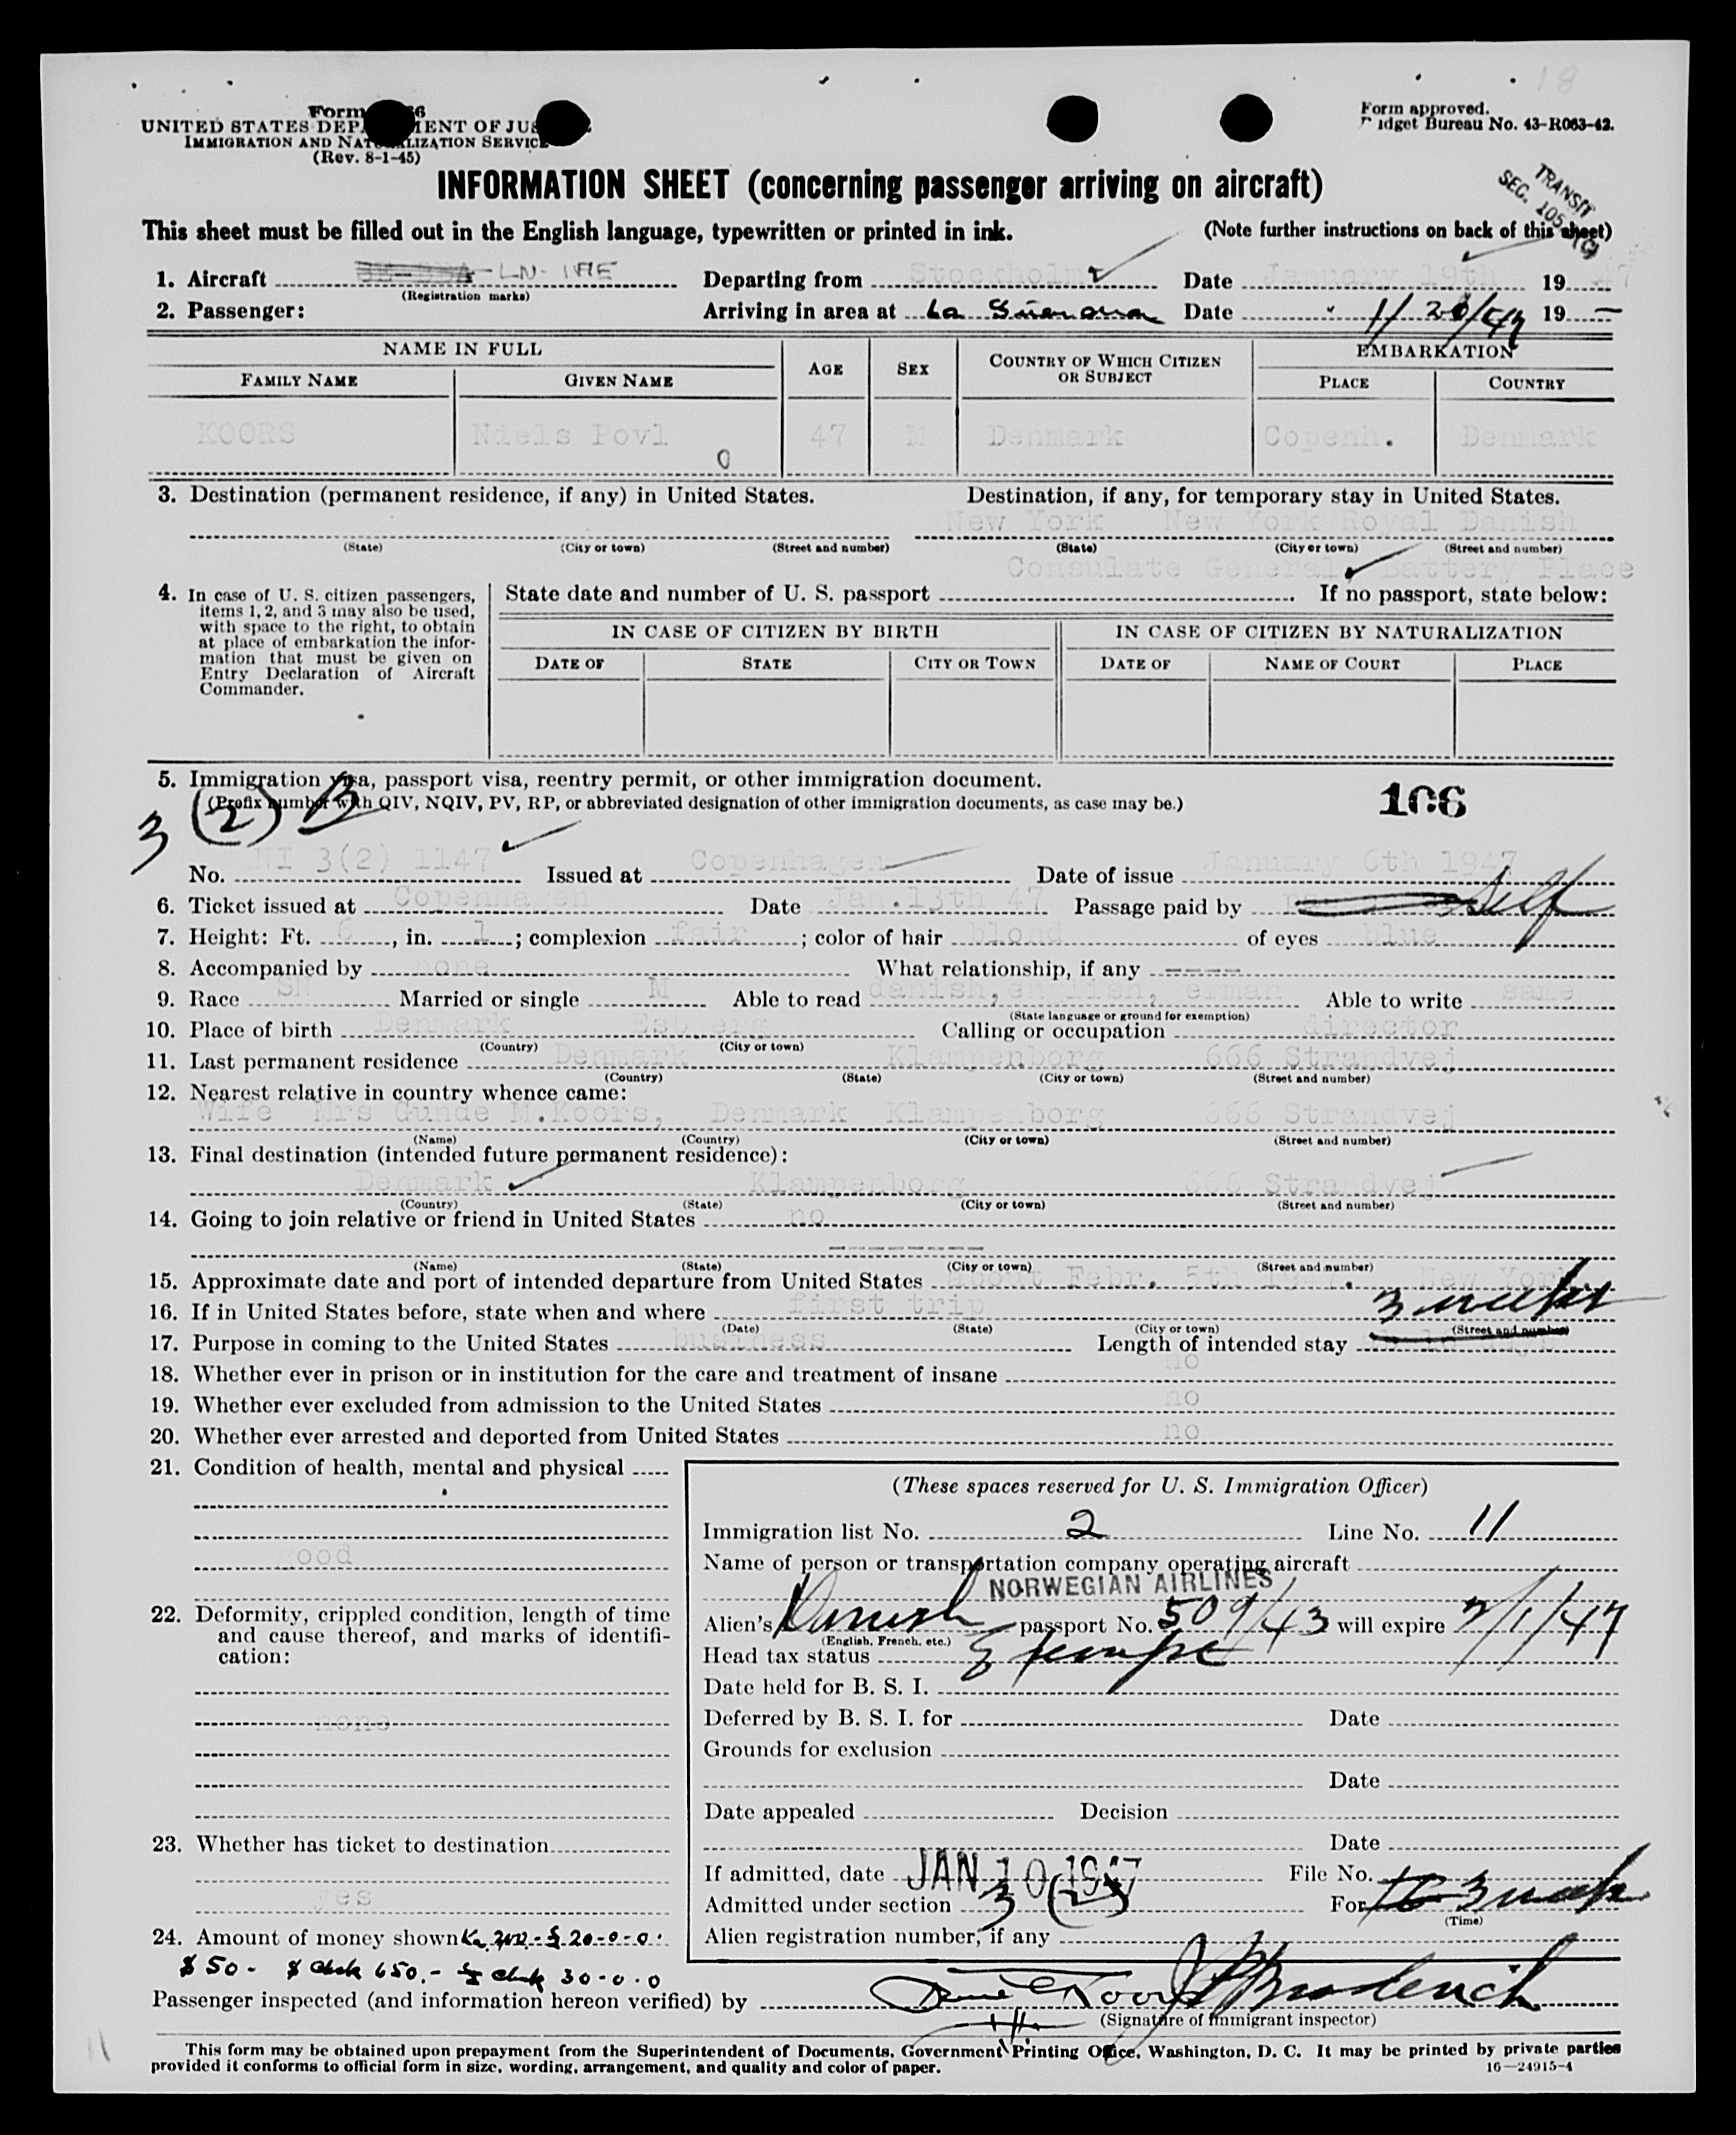 18
Form 66
UNITED STATES DEP MENT OF JUS
IMMIGRATION AND NATURALIZATION SERVICE
(Rev. 8-1-45)
Form approved.
Budget Bureau No. 43-R063-42.
INFORMATION SHEET (concerning passenger arriving on aircraft)
TRANSIT
SEC. 105
This sheet must be filled out in the English language, typewritten or printed in ink. (Note further instructions on back of this sheet)
1. Aircraft LN-IAE Departing from Stockholm Date January 19th 1947
(Registration marks)
2. Passenger: Arriving in area at La Date 1/20/47 19
NAME IN FULL AGE SEX COUNTRY OF WHICH CITIZEN OR SUBJECT EMBARKATION
FAMILY NAME GIVEN NAME PLACE COUNTRY
KOORS Niels Povl 47 M Denmark Copenh. Denmark
0
3. Destination (permanent residence, if any) in United States. Destination, if any, for temporary stay in United States.
New York New York Royal Danish
(State) (City or town) (Street and number) (State) (City or town) (Street and number)
Consulate General, Battery Place
4. In case of U. S. citizen passengers, items 1, 2, and 3 may also be used, with space to the right, to obtain at place of embarkation the information that must be given on Entry Declaration of Aircraft Commander.
State date and number of U. S. passport If no passport, state below:
IN CASE OF CITIZEN BY BIRTH IN CASE OF CITIZEN BY NATURALIZATION
DATE OF STATE CITY OR TOWN DATE OF NAME OF COURT PLACE
5. Immigration visa, passport visa, reentry permit, or other immigration document.
(Prefix number with QIV, NQIV, PV, RP, or abbreviated designation of other immigration documents, as case may be.)
106
3 (2) B
No. NI 3(2) 1147 Issued at Copenhagen Date of issue January 6th 1947
6. Ticket issued at Copenhagen Date Jan.13th 47 Passage paid by Self
7. Height: Ft. 6, in. 1; complexion fair; color of hair blond of eyes blue
8. Accompanied by none What relationship, if any -----
9. Race SN Married or single M Able to read danish, english, german Able to write same
(State language or ground for exemption)
10. Place of birth Denmark Calling or occupation director
(Country) (City or town)
11. Last permanent residence Denmark Klampenborg 666 Strandvej
(Country) (State) (City or town) (Street and number)
12. Nearest relative in country whence came:
Wife Mrs Gunde M.Koors, Denmark Klampenborg 666 Strandvej
(Name) (Country) (City or town) (Street and number)
13. Final destination (intended future permanent residence):
Denmark Klampenborg 666 Strandvej
(Country) (State) (City or town) (Street and number)
14. Going to join relative or friend in United States no
----------
(Name) (State) (City or town) (Street and number)
15. Approximate date and port of intended departure from United States about Febr. 5th 1947. New York
16. If in United States before, state when and where first trip
3 weeks
(Date) (State) (City or town) (Street and number)
17. Purpose in coming to the United States business Length of intended stay
18. Whether ever in prison or in institution for the care and treatment of insane no
19. Whether ever excluded from admission to the United States no
20. Whether ever arrested and deported from United States no
21. Condition of health, mental and physical
good
22. Deformity, crippled condition, length of time and cause thereof, and marks of identification:
none
23. Whether has ticket to destination
yes
24. Amount of money shown 20-0-0.
$50- $ check 650.- £ check 30-0-0
(These spaces reserved for U. S. Immigration Officer)
Immigration list No. 2 Line No. 11
Name of person or transportation company operating aircraft
NORWEGIAN AIRLINES
Alien's Danish passport No. 509/43 will expire 7/1/47
(English, French, etc.)
Head tax status Exempt
Date held for B. S. I.
Deferred by B. S. I. for Date
Grounds for exclusion
Date
Date appealed Decision
Date
If admitted, date JAN 20 1947 File No.
Admitted under section 3 (2) For 3 weeks
(Time)
Alien registration number, if any
Passenger inspected (and information hereon verified) by Koors
(Signature of immigrant inspector)
This form may be obtained upon prepayment from the Superintendent of Documents, Government Printing Office, Washington, D. C. It may be printed by private parties
provided it conforms to official form in size, wording, arrangement, and quality and color of paper. 16—24915-4